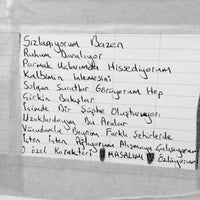 Sızlanıyorum Bazen
Ruhum Daralıyor
Parmak Uclarımda Hissediyorum
Kalbimin İnlemesini
Solgun Suratlar Görüyorum Hep
Çirkin Bakışlar
İçimde Bir Şüphe Oluşturuyor
Uzaklardayım Bu Aralar
Vücudumla Beynim Farklı Şehirlerde
İçten İçten Ağlıyorum Alışmaya Çalışıyorum
O özel Karakteri MASALIM Özlüyorum